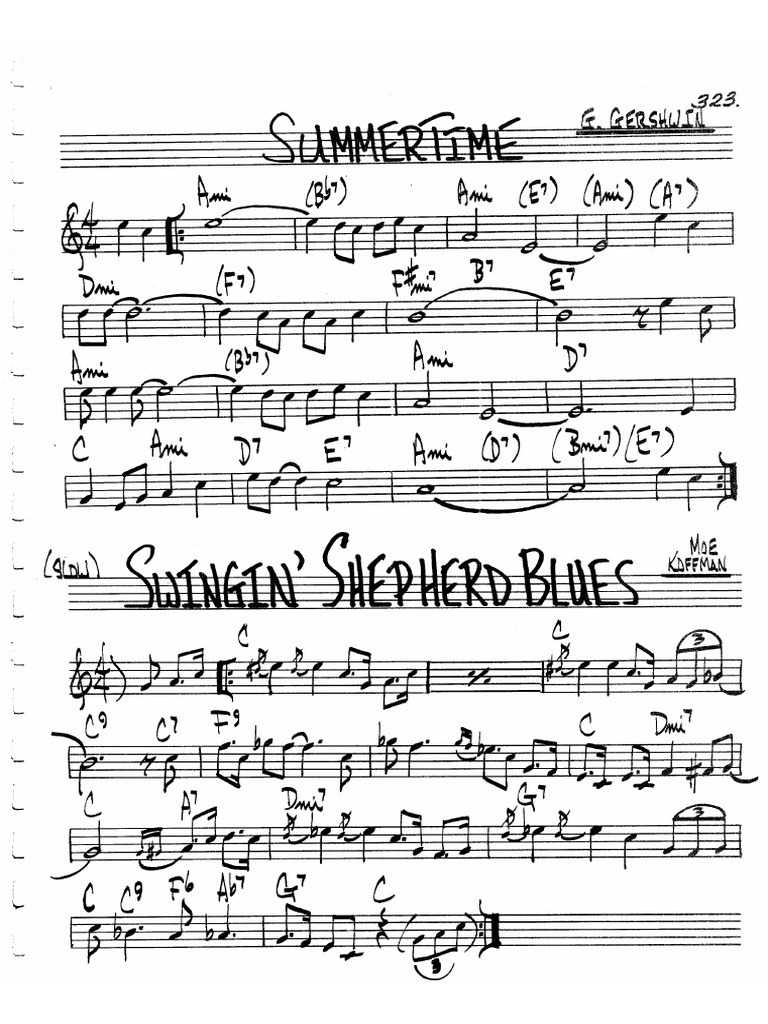 323.
SUMMERTIME
G. GERSHWIN
Ami (Bb7) Ami (E7) (Ami) (A7)
4/4
Dmi (F7) F#mi7 B7 E7
Ami (Bb7) Ami D7
C Ami D7 E7 Ami (D7) (Bmi7) (E7)
(SLOW)
SWINGIN' SHEPHERD BLUES
MOE
KOFFMAN
C C
4/4
3
C9 C7 F9 C Dmi7
C A7 Dmi7 G7
3
C C9 F6 Ab7 G7 C
3